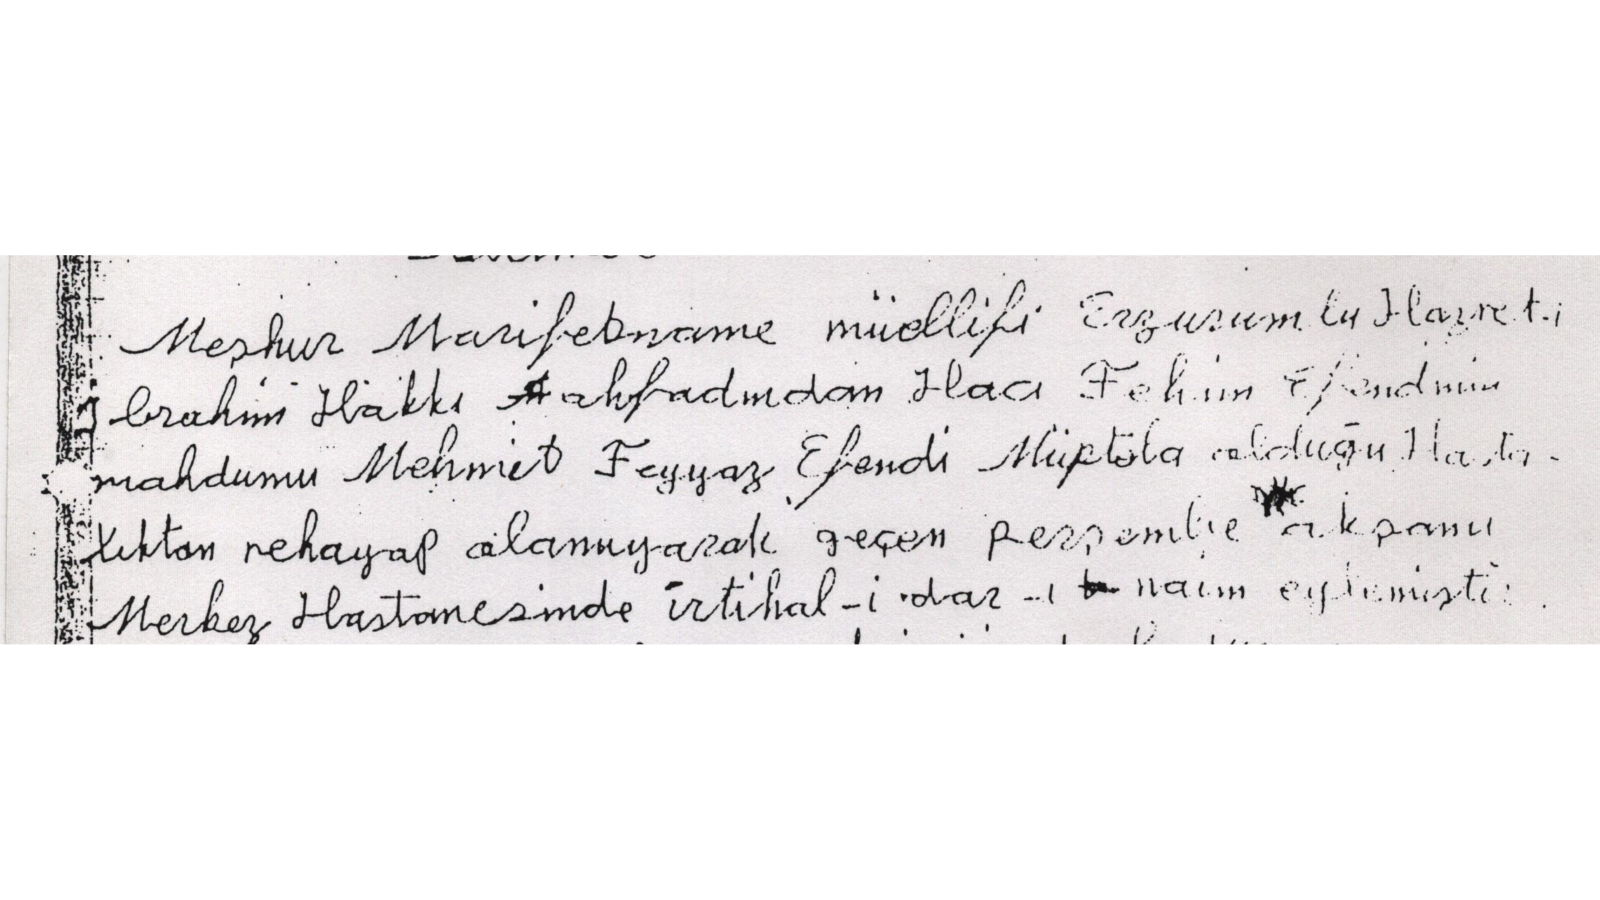 Meşhur Marifetname müellifi Erzurumlu Hazreti
İbrahim Hakkı ahfadından Hacı Fehim Efendinin
mahdumu Mehmet Feyyaz Efendi Müptela olduğu Hasta-
lıktan rehayap olamıyarak geçen perşembe akşamı
Merkez Hastanesinde irtihal-i dar-ı naim eylemiştir.